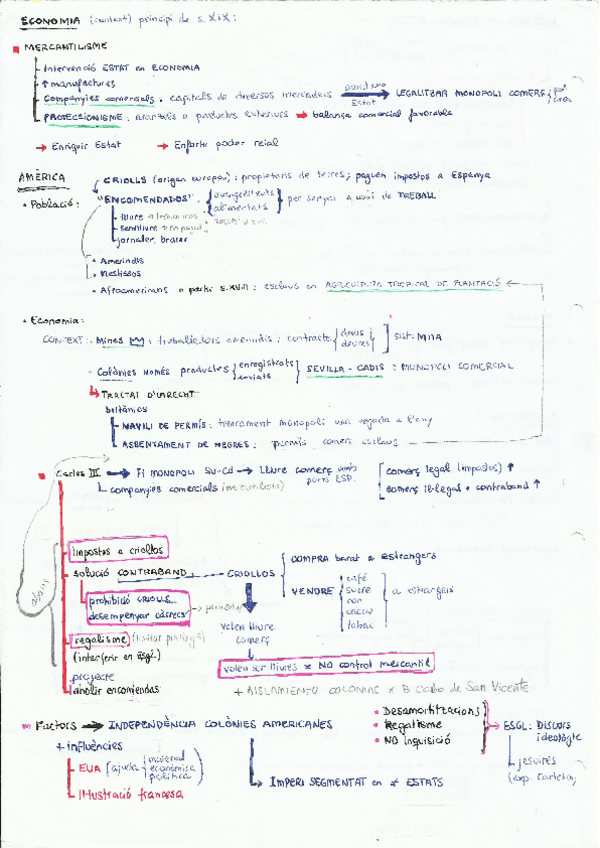 ECONOMIA (context) principi de s. XIX:
MERCANTILISME
- Intervenció ESTAT en ECONOMIA
- ↑ manufactures
- Companyies comercials: capitals de diversos mercaders → Estat LEGALITZAR MONOPOLI COMERÇ
- PROTECCIONISME: aranzels a productes exteriors → balança comercial favorable
→ Enriquir Estat → Enfortir poder reial
AMÈRICA
CRIOLLS (origen europeu): propietaris de terres; paguen impostos a Espanya
• Població: "ENCOMENDADOS". evangelitzats
alimentats per servei a canvi de TREBALL
- lliure
- semilliure
- jornaler, bracer
• Amerindis
• Mestissos
• Afroamericans a partir s. XVII: esclaus en AGRICULTURA TROPICAL DE PLANTACIÓ
• Economia:
CONTEXT: - Mines: treballadors amerindis: contracte drets
deures SIST. MITA
- Colònies només productes enregistrats
enviats SEVILLA - CADIS: MONOPOLI COMERCIAL
TRACTAT D'UTRECHT
britànics
NAVILI DE PERMÍS: trencament monopoli una vegada a l'any
ASSENTAMENT DE NEGRES: permís comerç esclaus
Carles III → Fi MONOPOLI SV-Cd → LLIURE comerç amb ports ESP. comerç legal (impostos) ↑
companyies comercials comerç il·legal • contraband ↑
impostos a criollos
solució CONTRABAND CRIOLLOS COMPRA barat a estrangers
VENDRE café
sucre
ron
cacau
tabac a estrangers
prohibició CRIOLLS...
desempenyar càrrecs
volen lliure
comerç
regalisme (limitar privilegis)
(interferir en Esgl.)
volen ser lliures x NO control mercantil
projecte
abolir encomiendas
+ AISLAMIENTO COLONIAS x B Cabo de San Vicente
Factors → INDEPENDÈNCIA COLÒNIES AMERICANES
• Desamortitzacions
• Regalisme
• NO Inquisició
→ ESGL: DISCURS
ideològic
jesuïtes
+ influències
EUA (ajuda material
econòmica
política)
Il·lustració francesa
→ IMPERI SEGMENTAT en ≠ ESTATS